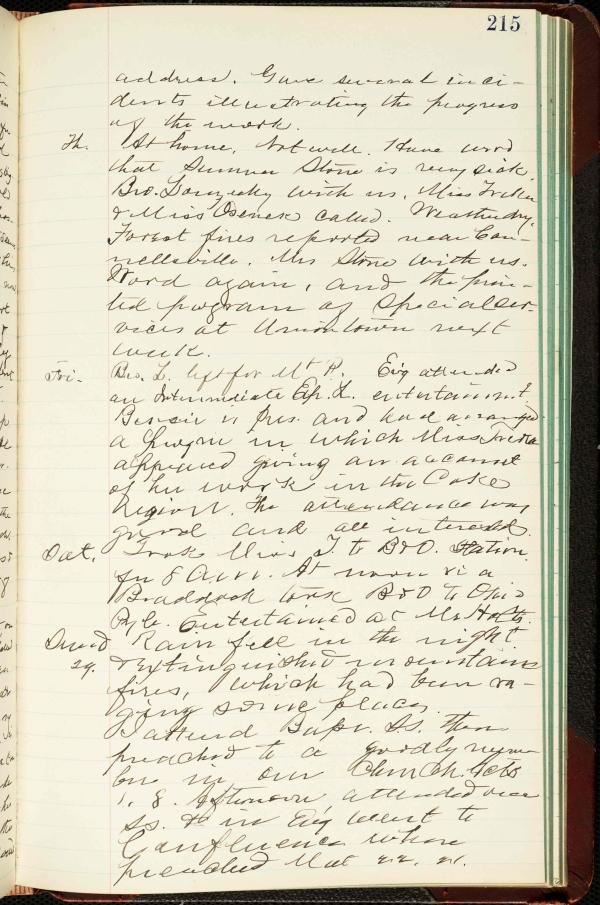 215
address. Gave several inci-
dents illustrating the progress
of the work.
Th. At home. Not well. Have word
that Sumner Stone is very sick.
Bro. with us. Miss
& Miss called. Weather dry.
Forest fires reported near Con-
nellsville. Mrs Stone with us.
Word again, and the prin-
ted program of special ser-
vices at Uniontown next
week.
Fri. Bro. L. left for Mt P. Evg attended
an Intermediate Ep. L. entertainmt.
Bessie is Pres. and had arranged
a progm in which Miss
appeared giving an account
of her work in the Coke
region. The attendance was
good and all interested.
Sat. Took Miss T. to B&O. Station
for 8 A.M. At noon via
Braddock took B&O to Ohio
Pyle. Entertained at Mr Holts.
Rain fell in the night
29. & extinguished mountain
fires, which had been ra-
ging some places.
I attend Bapt. S.S. then
preached to a goodly num-
ber in our Church. Acts
1, 8. Afternoon attended our
S.S. & in Evg went to
Confluence where
preached Mat 22. 21.